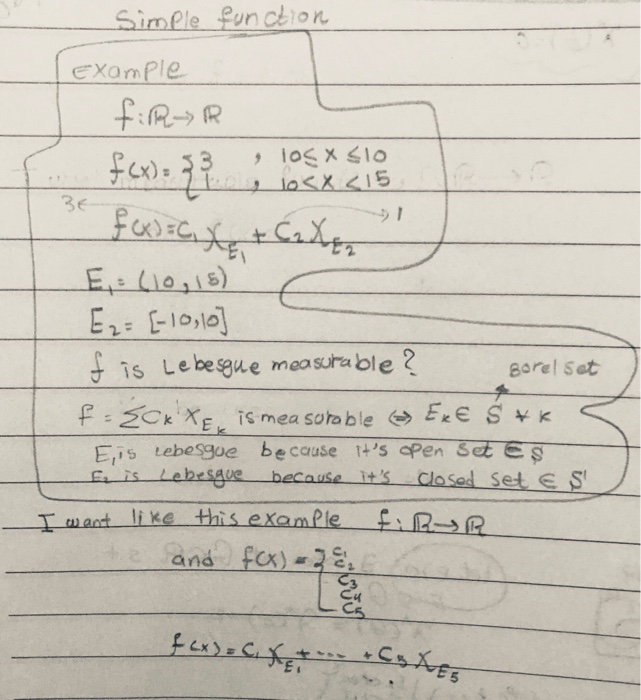 Simple function
Example
f: ℝ → ℝ
f(x) = { 3 , 10 ≤ x ≤ 10
1 , 10 < x < 15
3 ← f(x) = C₁ X_E₁ + C₂ X_E₂ → 1
E₁ = (10, 15)
E₂ = [-10, 10]
f is Lebesgue measurable?
Borel set
f = ∑ Cₖ X_Eₖ is measurable ⇔ Eₖ ∈ S ∀ k
E₁ is Lebesgue because it's open set ∈ S
E₂ is Lebesgue because it's closed set ∈ S
I want like this example f: ℝ → ℝ
and f(x) = { C₁
C₂
C₃
C₄
C₅
f(x) = C₁ X_E₁ + ... + C₅ X_E₅